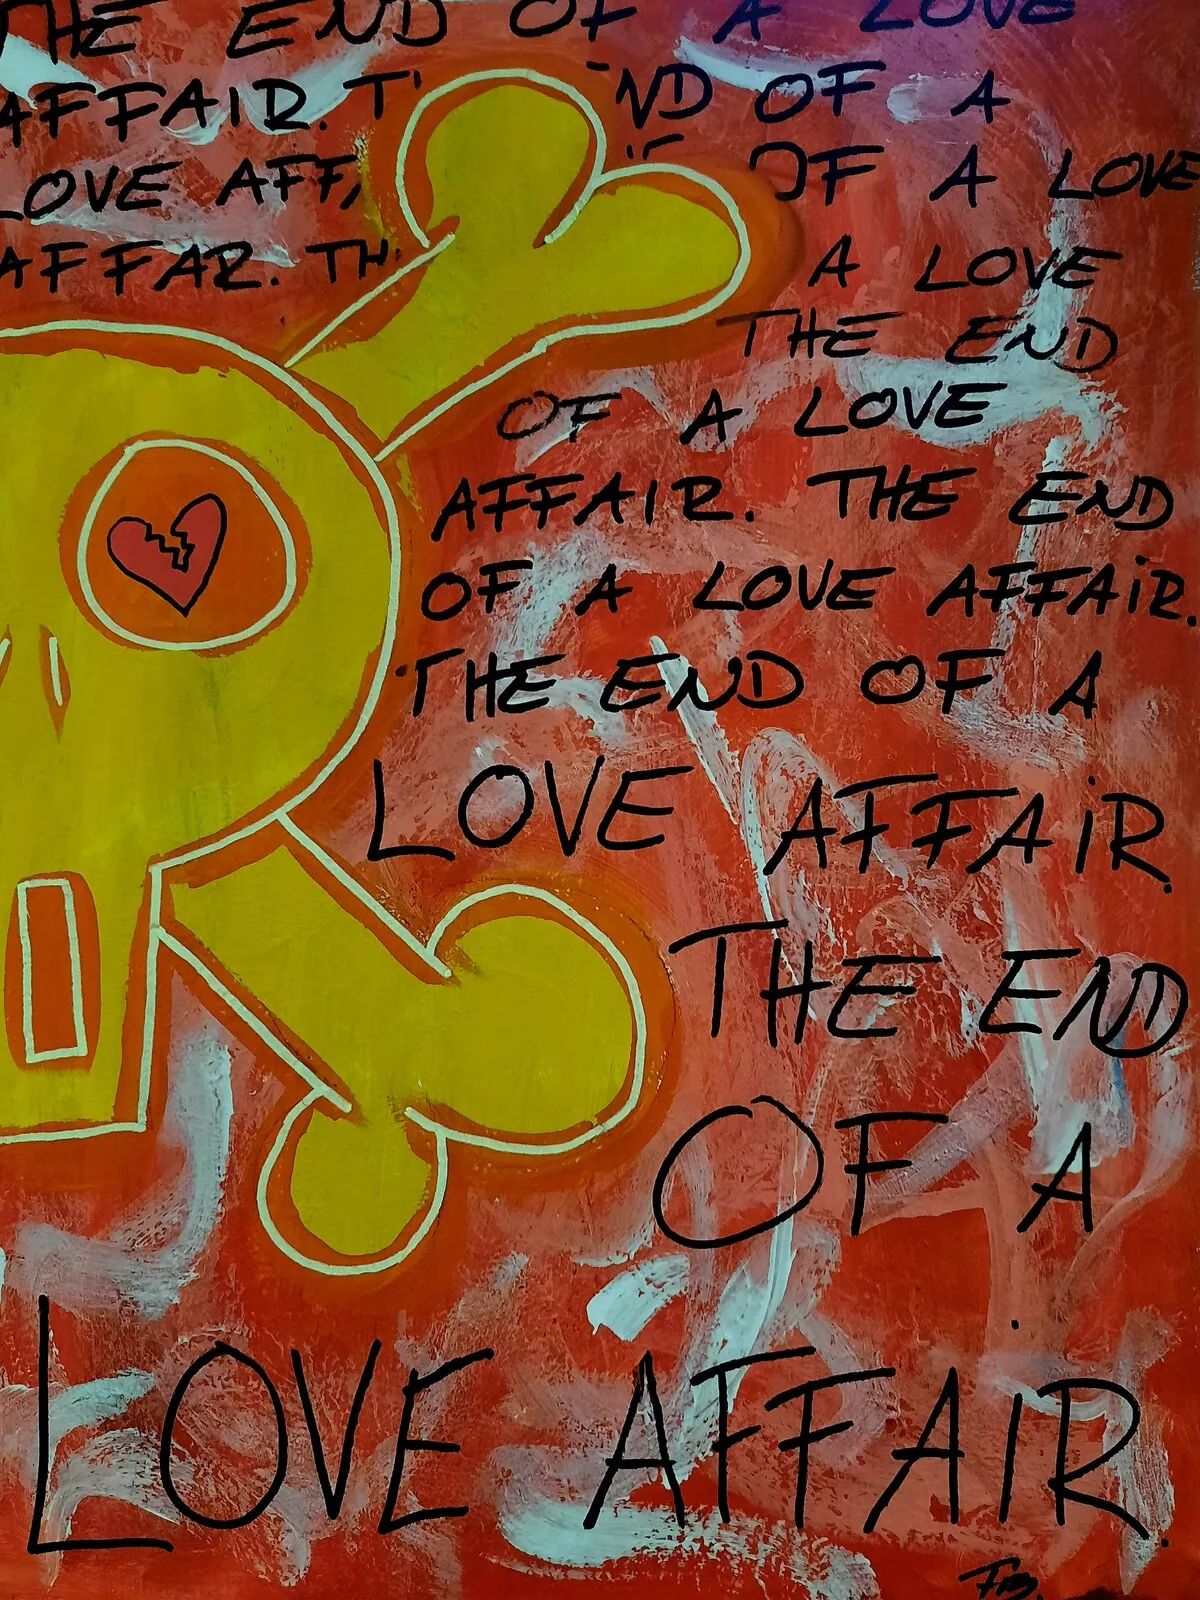 THE END OF A LOVE
AFFAIR. T ND OF A
LOVE AFF OF A LOVE
AFFAR. TH A LOVE
THE END
OF A LOVE
AFFAIR. THE END
OF A LOVE AFFAIR.
THE END OF A
LOVE AFFAIR.
THE END
OF A
LOVE AFFAIR.